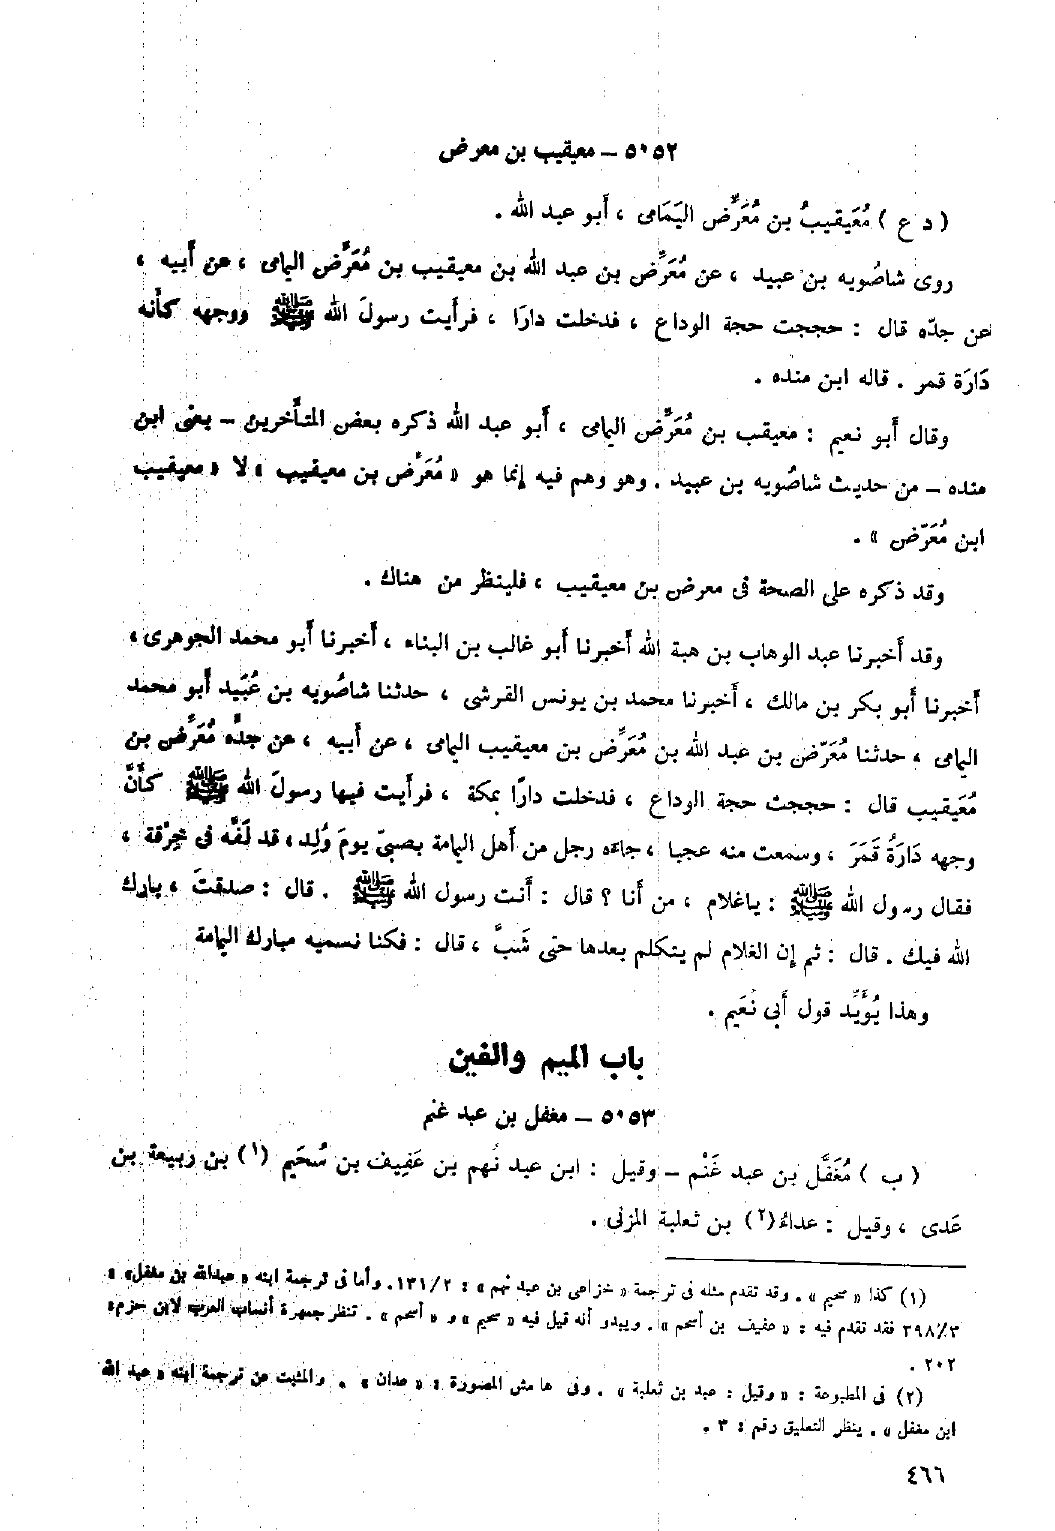 ٥٠٥٢ – معيقيب بن معرض
( د ع ) مُعَيقيبُ بن مُعَرِّض اليَمَامى ، أَبو عبد الله .
روى شاصُويه بن عبيد ، عن مُعَرِّض بن عبد الله بن معيقيب بن مُعَرِّض اليمامى ، عن أَبيه ،
عن جدّه قال : حججت حجة الوداع ، فدخلت دارًا ، فرأَيت رسولَ الله ﷺ ووجهه كأَنه
دَارَة قمر . قاله ابن منده .
وقال أَبو نعيم : معيقب بن مُعَرِّض اليمامى ، أَبو عبد الله ذكره بعض المتأَخرين – يعنى ابن
منده – من حديث شاصُويه بن عبيد . وهو وهم فيه إنما هو « مُعَرِّض بن معيقيب » لا « معيقيب
ابن مُعَرّض » .
وقد ذكره على الصحة فى معرض بن معيقيب ، فلينظر من هناك .
وقد أَخبرنا عبد الوهاب بن هبة الله أَخبرنا أَبو غالب بن البناء ، أَخبرنا أَبو محمد الجوهرى ،
أَخبرنا أَبو بكر بن مالك ، أَخبرنا محمد بن يونس القرشى ، حدثنا شاصُويه بن عُبَيد أَبو محمد
اليمامى ، حدثنا مُعَرّض بن عبد الله بن مُعَرِّض بن معيقيب اليمامى ، عن أَبيه ، عن جدِّه مُعَرِّض بن
مُعَيقيب قال : حججت حجة الوداع ، فدخلت دارًا بمكة ، فرأَيت فيها رسولَ الله ﷺ كأَنَّ
وجهه دَارَةُ قَمَرَ ، وسمعت منه عجبا ، جاءه رجل من أَهل اليمامة بصبىّ يومَ وُلِد ، قد لَفَّه فى خِرْقة ،
فقال رسول الله ﷺ : ياغلام ، من أَنا ؟ قال : أَنت رسول الله ﷺ . قال : صدقتَ ، بارك
الله فيك . قال : ثم إِن الغلام لم يتكلم بعدها حتى شَبَّ ، قال : فكنا نسميه مبارك اليمامة
وهذا يُؤَيِّد قول أَبى نُعَيم .
باب الميم والغين
٥٠٥٣ – مغفل بن عبد غنم
( ب ) مُغَفَّل بن عبد غَنْم – وقيل : ابن عبد نُهم بن عَفِيف بن سُحَيم (١) بن ربيعة بن
عَدى ، وقيل : عداءُ(٢) بن ثعلبة المزنى .
(١) كذا « سحيم » . وقد تقدم مثله فى ترجمة « خزاعى بن عبد نهم » : ١٣١/٢. وأما فى ترجمة ابنه « عبدالله بن مغفل» :
٣٩٨/٣ فقد تقدم فيه : « عفيف بن أسحم » . ويبدو أنه قيل فيه « سحيم » و « أسحم » . تنظر جمهرة أنساب العرب لابن حزم:
٢٠٢ .
(٢) فى المطبوعة : « وقيل : عبد بن ثعلبة » . وفى هامش المصورة : « عدان » . والمثبت عن ترجمة ابنه « عبد الله
ابن مغفل » . ينظر التعليق رقم : ٣ .
٤٦٦